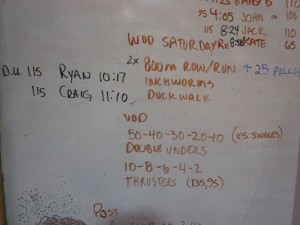 4:05 JOHN 100
115 8:24 JACK 110
WOD SATURDAY RX KATE 65
2x 800M ROW/RUN + 25
D.U. 115 RYAN 10:17
INCHWORMS
115 CRAIG 11:10
DUCK WALK
WOD
50-40-30-20-10 (x5 SINGLES)
DOUBLE UNDERS
10-8-6-4-2
THRUSTERS (135,95)
POST